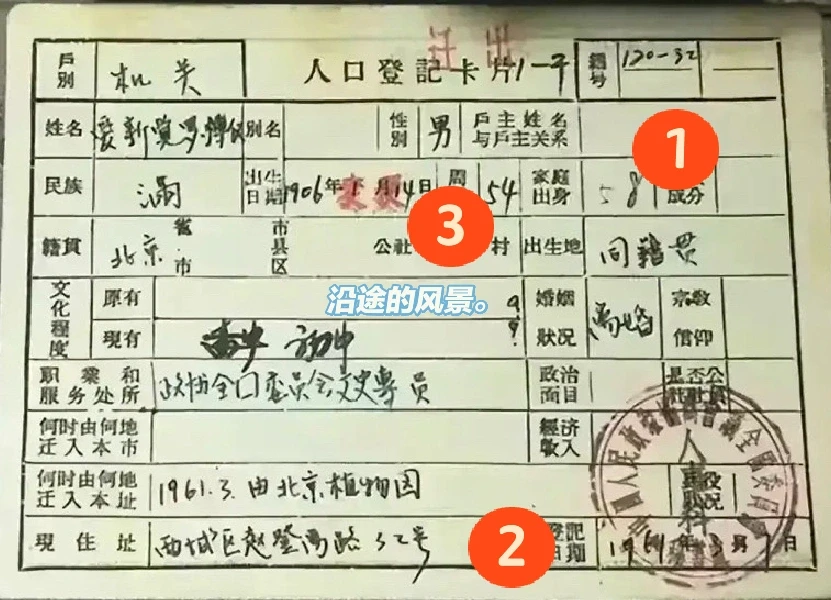 迁出
戶別 机关 人口登記卡片 1-平 編号 120-32
姓名 爱新觉罗·溥仪 別名 性別 男 戶主姓名与戶主关系
1
民族 滿 出生日期 1906年1月14日 周 54 家庭出身 成分
3
籍貫 北京 省市 市县区 公社 村 出生地 同籍贯
文化程度 原有 婚姻狀况 离婚 宗教信仰
沿途的风景。
現有 初中
职業和服务处所 政协全国委员会文史專员 政治面目 是否公社社員
何时由何地迁入本市 經济收入
何时由何地迁入本址 1961.3.由北京植物园
現住址 西城区赵登禹路32号 登記日期 1961年3月 日
2